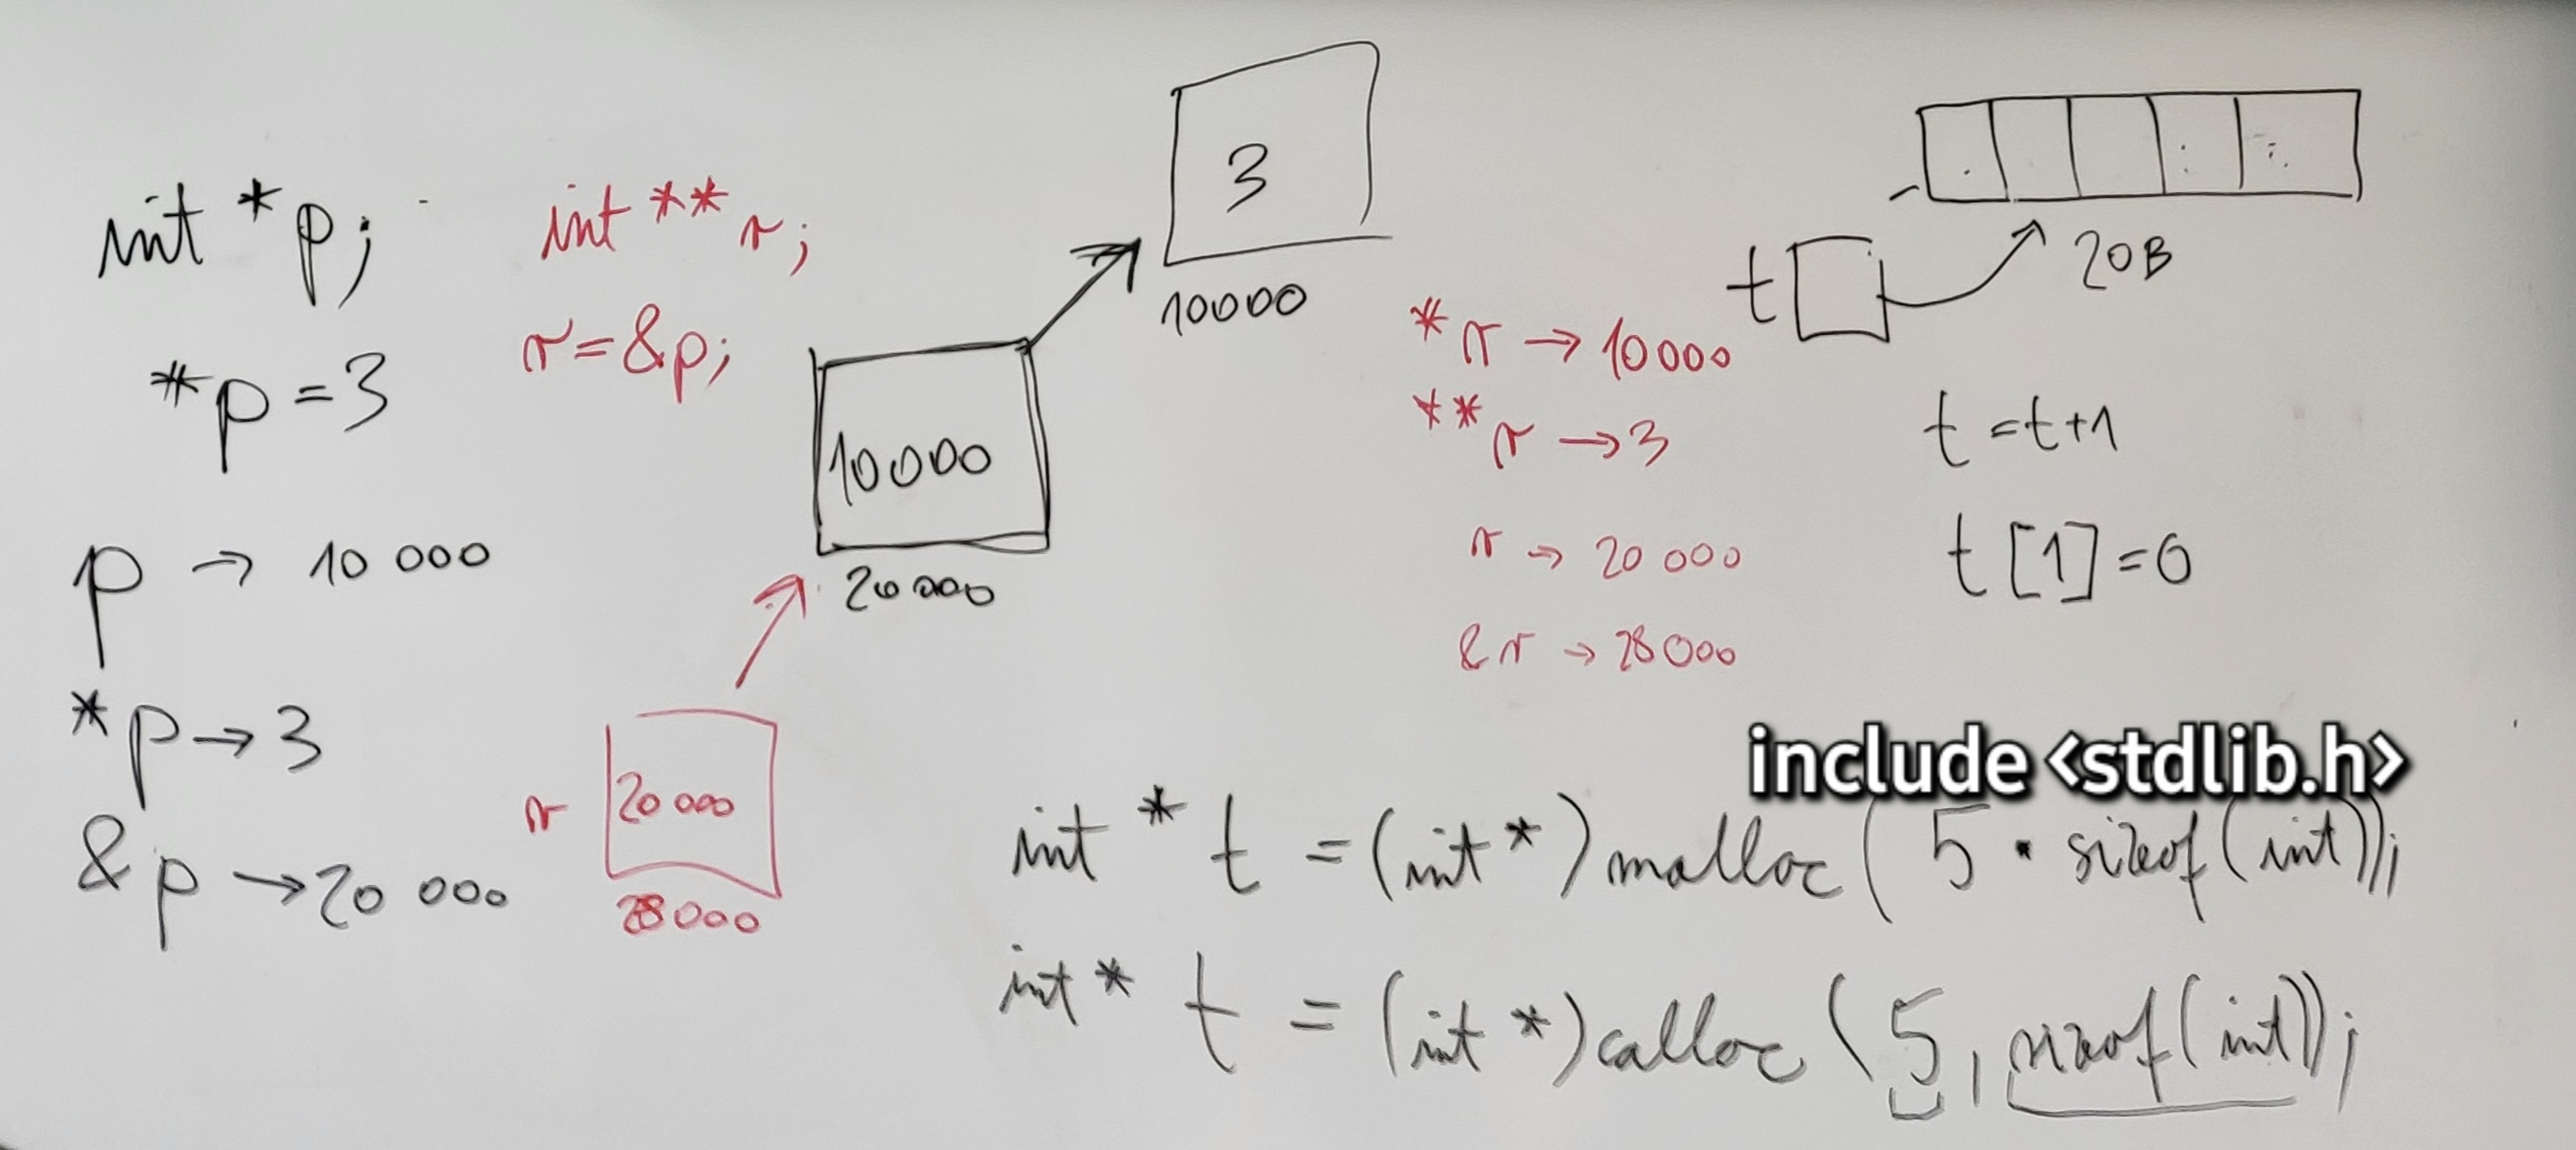 int *p;
*p = 3
p → 10 000
*p → 3
&p → 20 000
int **r;
r = &p;
3
10000
10000
20000
r
20 000
28000
*r → 10000
**r → 3
r → 20 000
&r → 28000
t
20B
t = t+1
t[1] = 0
include <stdlib.h>
int * t = (int*) malloc( 5 · sizeof(int));
int * t = (int *) calloc( 5, sizeof(int));